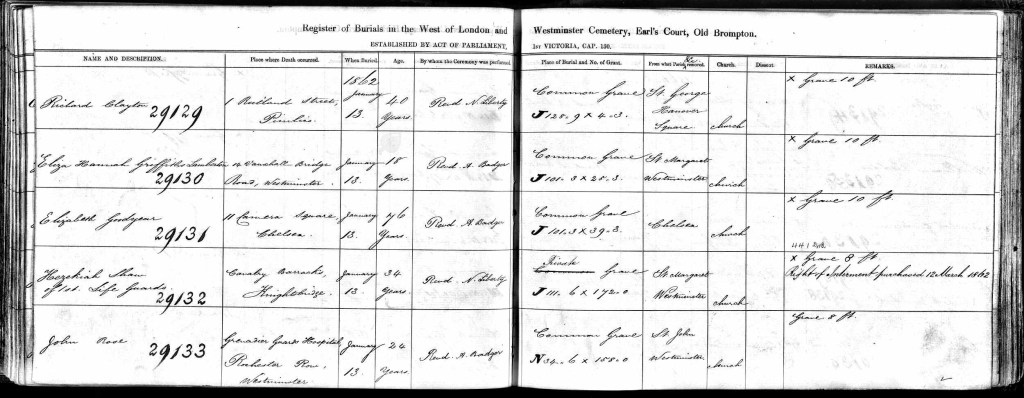 Register of Burials in the West of London and Westminster Cemetery, Earl's Court, Old Brompton.
ESTABLISHED BY ACT OF PARLIAMENT, 1ST VICTORIA, CAP. 130.
NAME AND DESCRIPTION. Place where Death occurred. When Buried. Age. By whom the Ceremony was performed. Place of Burial and No. of Grant. From what Parish removed. Church. Dissent. REMARKS.
1862
Richard Clayton 1 Rutland Street, January 40 Revd N. Liberty Common Grave St George x Grave 10 ft.
29129 Pimlico 13. Years. J 128.9 x 4.3. Hanover
Square Church
Eliza Hannah Griffiths Lambert 12 Vauxhall Bridge January 18 Revd A. Badger Common Grave St Margaret x Grave 10 ft.
29130 Road, Westminster. 13. Years. J 101.3 x 25.3. Westminster Church
Elizabeth Goodyear 11 Camera Square, January 76 Revd A. Badger Common Grave Chelsea x Grave 10 ft.
29131 Chelsea. 13. Years. J 101.3 x 39.3. Church
Hezekiah Shaw Cavalry Barracks, January 34 Revd N. Liberty Private Grave St Margaret x Grave 8 ft.
of 1st. Life Guards. 29132 Knightsbridge. 13. Years. J 111.6 x 172.0 Westminster Church Right of Interment purchased 12 March 1862
John Rose 29133 Grenadier Guards Hospital, January 24 Revd A. Badger Common Grave St John Grave 8 ft.
Rochester Row, 13. Years. N 34.6 x 158.0 Westminster Church
Westminster